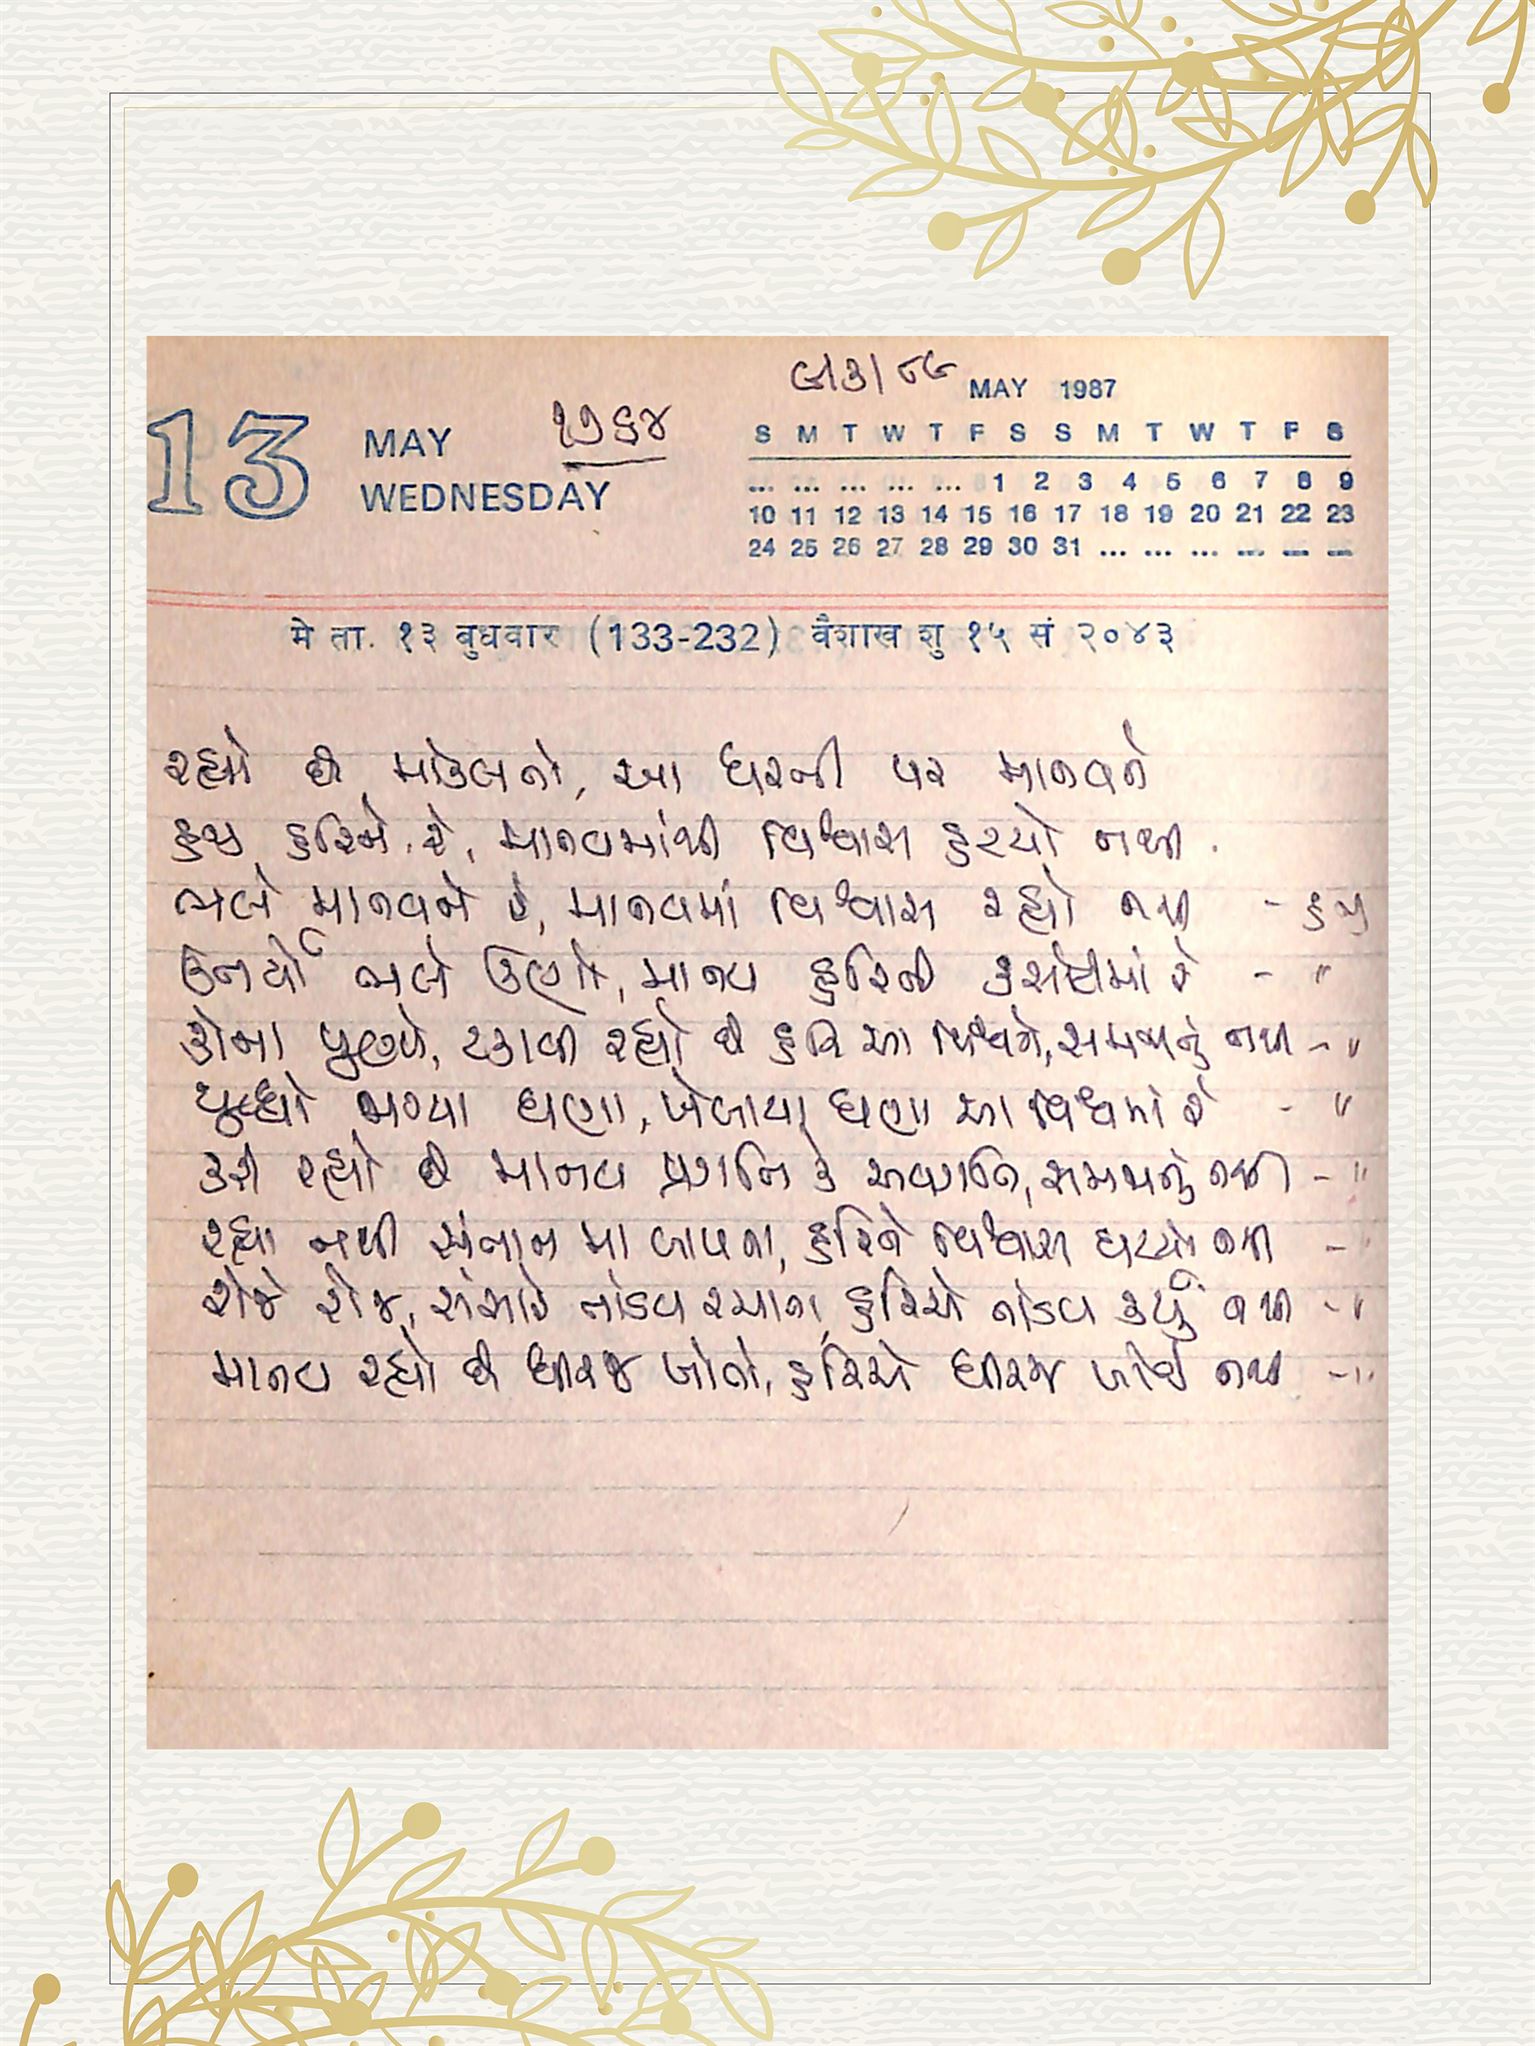 ૯।૩।૮૯ MAY 1987
13 MAY ૧૭૬૪
WEDNESDAY
S M T W T F S S M T W T F S
... ... ... ... ... 1 2 3 4 5 6 7 8 9
10 11 12 13 14 15 16 17 18 19 20 21 22 23
24 25 26 27 28 29 30 31 ... ... ... ... ... ...
मे ता. १३ बुधवार (133-232) वैशाख शु १५ सं २०४३
રહ્યો છે મોકલતો, આ ધરતી પર માનવને
હજી હરિએ રે, માનવમાંથી વિશ્વાસ હરયો નથી .
ભલે માનવને રે, માનવમાં વિશ્વાસ રહ્યો નથી - હજી
ઉતર્યો ભલે ઉણો, માનવ હરિની કસોટીમાં રે - "
કોના પુણ્યે, ટકાવી રહ્યો છે હરિ આ વિશ્વને, સમજાતું નથી - "
યુદ્ધો મચ્યા ઘણા, ખેલાયા ઘણા આ વિશ્વમાં રે - "
કરી રહ્યો છે માનવ પ્રગતિ કે અવગતિ, સમજાતું નથી - "
રહ્યા નથી સંતાન મા બાપના, હરિને વિશ્વાસ ઘટયો નથી - "
રોજે રોજ, સંસારે તાંડવ રચાતા, હરિએ તાંડવ કર્યું નથી - "
માનવ રહ્યો છે ધીરજ ખોતો, હરિએ ધીરજ ખોઈ નથી - "